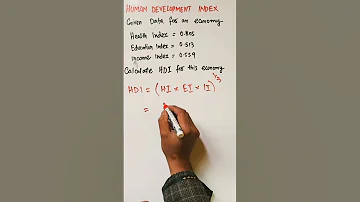 HUMAN DEVELOPMENT INDEX
Given Data for an economy
Health Index = 0.805
Education Index = 0.513
Income Index = 0.559
Calculate HDI for this economy
HDI = (HI × EI × II)^1/3
=